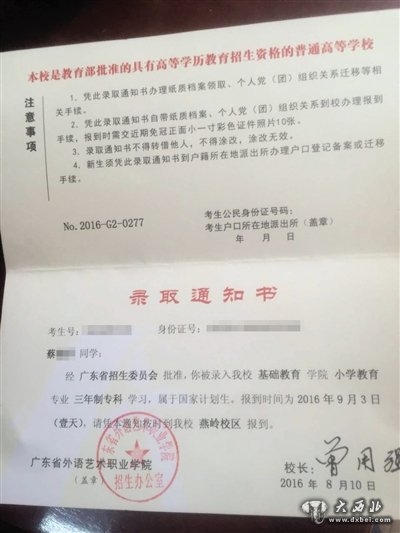 本校是教育部批准的具有高等学历教育招生资格的普通高等学校
注意事项
1．凭此录取通知书办理纸质档案领取、个人党（团）组织关系迁移等相
关手续。
2．凭此录取通知书自带纸质档案、个人党（团）组织关系到校办理报到
手续，报到时需交近期免冠正面小一寸彩色证件照片10张。
3．录取通知书不得转借他人，不得涂改，涂改无效。
4．新生须凭此录取通知书到户籍所在地派出所办理户口登记备案或迁移
手续。
No.2016-G2-0277
考生公民身份证号码：
考生户口所在地派出所（盖章）
年 月 日
录取通知书
考生号： 身份证号：
蔡 同学：
经 广东省招生委员会 批准，你被录入我校 基础教育 学院 小学教育
专业 三年制专科 学习，属于国家计划生。报到时间为 2016 年 9 月 3 日
（壹天），请凭本通知按时到我校 燕岭校区 报到。
广东省外语艺术职业学院
（盖章）
广东省外语艺术职业学院
招生办公室
校长：曾用强
2016 年 8 月 10 日
大西北
www.dxbei.com